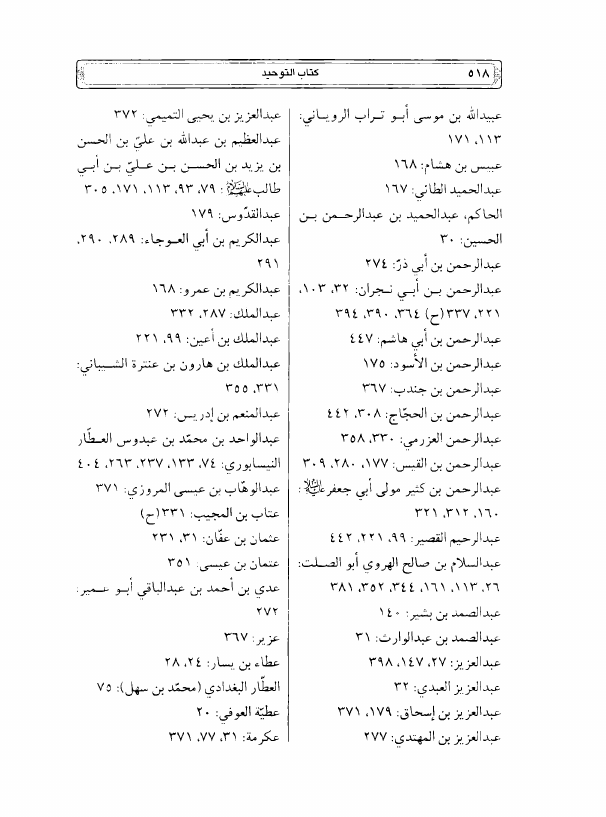 ٥١٨
كتاب التوحيد
عبيدالله بن موسى أبو تراب الروياني:
١١٣، ١٧١
عبيس بن هشام: ١٦٨
عبدالحميد الطائي: ١٦٧
الحاكم، عبدالحميد بن عبدالرحمن بن
الحسين: ٣٠
عبدالرحمن بن أبي ذرّ: ٢٧٤
عبدالرحمن بن أبي نجران: ٣٢، ١٠٣،
٢٢١، ٣٣٧(ح) ٣٦٤، ٣٩٠، ٣٩٤
عبدالرحمن بن أبي هاشم: ٤٤٧
عبدالرحمن بن الأسود: ١٧٥
عبدالرحمن بن جندب: ٣٦٧
عبدالرحمن بن الحجّاج: ٣٠٨، ٤٤٢
عبدالرحمن العزرمي: ٣٣٠، ٣٥٨
عبدالرحمن بن القيس: ١٧٧، ٢٨٠، ٣٠٩
عبدالرحمن بن كثير مولى أبي جعفر:
١٦٠، ٣١٢، ٣٢١
عبدالرحيم القصير: ٩٩، ٢٢١، ٤٤٢
عبدالسلام بن صالح الهروي أبو الصلت:
٢٦، ١١٣، ١٦١، ٣٤٤، ٣٥٢، ٣٨١
عبدالصمد بن بشير: ١٤٠
عبدالصمد بن عبدالوارث: ٣١
عبدالعزيز: ٢٧، ١٤٧، ٣٩٨
عبدالعزيز العبدي: ٣٢
عبدالعزيز بن إسحاق: ١٧٩، ٣٧١
عبدالعزيز بن المهتدي: ٢٧٧
عبدالعزيز بن يحيى التميمي: ٣٧٢
عبدالعظيم بن عبدالله بن عليّ بن الحسن
بن يزيد بن الحسن بن عليّ بن أبي
طالب: ٧٩، ٩٣، ١١٣، ١٧١، ٣٠٥
عبدالقدّوس: ١٧٩
عبدالكريم بن أبي العوجاء: ٢٨٩، ٢٩٠،
٢٩١
عبدالكريم بن عمرو: ١٦٨
عبدالملك: ٢٨٧، ٣٣٢
عبدالملك بن أعين: ٩٩، ٢٢١
عبدالملك بن هارون بن عنترة الشيباني:
٣٣١، ٣٥٥
عبدالمنعم بن إدريس: ٢٧٢
عبدالواحد بن محمّد بن عبدوس العطّار
النيسابوري: ٧٤، ١٣٣، ٢٣٧، ٢٦٣، ٤٠٤
عبدالوهّاب بن عيسى المروزي: ٣٧١
عتاب بن المجيب: ٣٣١(ح)
عثمان بن عفّان: ٣١، ٢٣١
عثمان بن عيسى: ٣٥١
عدي بن أحمد بن عبدالباقي أبو عمير:
٢٧٢
عزير: ٣٦٧
عطاء بن يسار: ٢٤، ٢٨
العطّار البغدادي (محمّد بن سهل): ٧٥
عطيّة العوفي: ٢٠
عكرمة: ٣١، ٧٧، ٣٧١